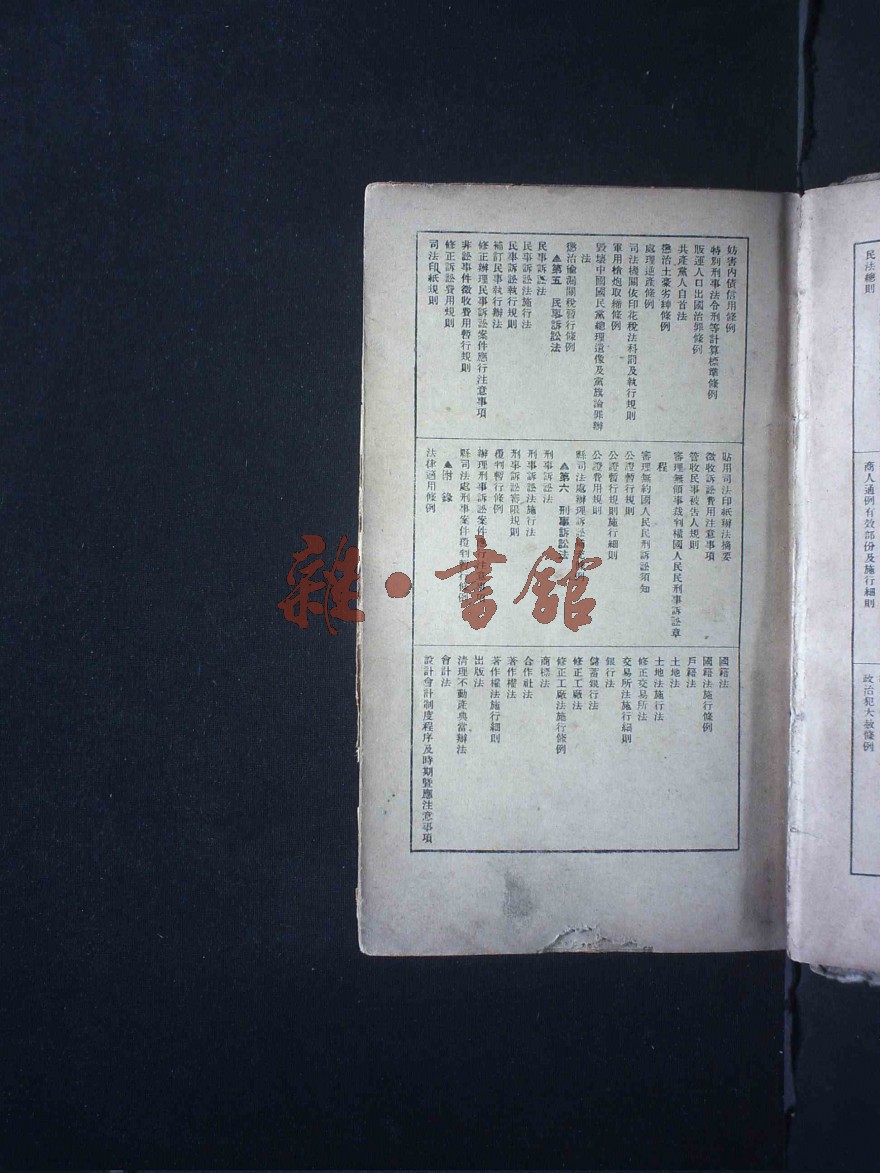 妨害內債信用條例
特別刑事法令刑等計算標準條例
販運人口出國治罪條例
共產黨人自首法
懲治土豪劣紳條例
處理逆產條例
司法機關依印花稅法科罰及執行規則
軍用槍炮取締條例
毀壞中國國民黨總理遺像及黨旗論罪辦
法
懲治偷漏關稅暫行條例
▲第五 民事訴訟法
民事訴訟法
民事訴訟法施行法
民事訴訟執行規則
補訂民事執行辦法
修正辦理民事訴訟案件應行注意事項
非訟事件徵收費用暫行規則
修正訴訟費用規則
司法印紙規則
貼用司法印紙辦法摘要
徵收訴訟費用注意事項
管收民事被告人規則
審理無領事裁判權國人民民刑事訴訟章
程
審理無約國人民民刑訴訟須知
公證暫行規則
公證暫行規則施行細則
公證費用規則
縣司法處辦理訴訟
▲第六 刑事訴訟法
刑事訴訟法
刑事訴訟法施行法
刑事訴訟審限規則
覆判暫行條例
辦理刑事訴訟案件
縣司法處刑事案件覆判
▲附錄
法律適用條例
國籍法
國籍法施行條例
戶籍法
土地法
土地法施行法
修正交易所法
交易所法施行細則
銀行法
儲蓄銀行法
修正工廠法
修正工廠法施行條例
商標法
合作社法
著作權法
著作權法施行細則
出版法
清理不動產典當辦法
會計法
設計會計制度程序及時期暨應注意事項
民法總則
商人通例有效部份及施行細則
政治犯大赦條例
雜·書館